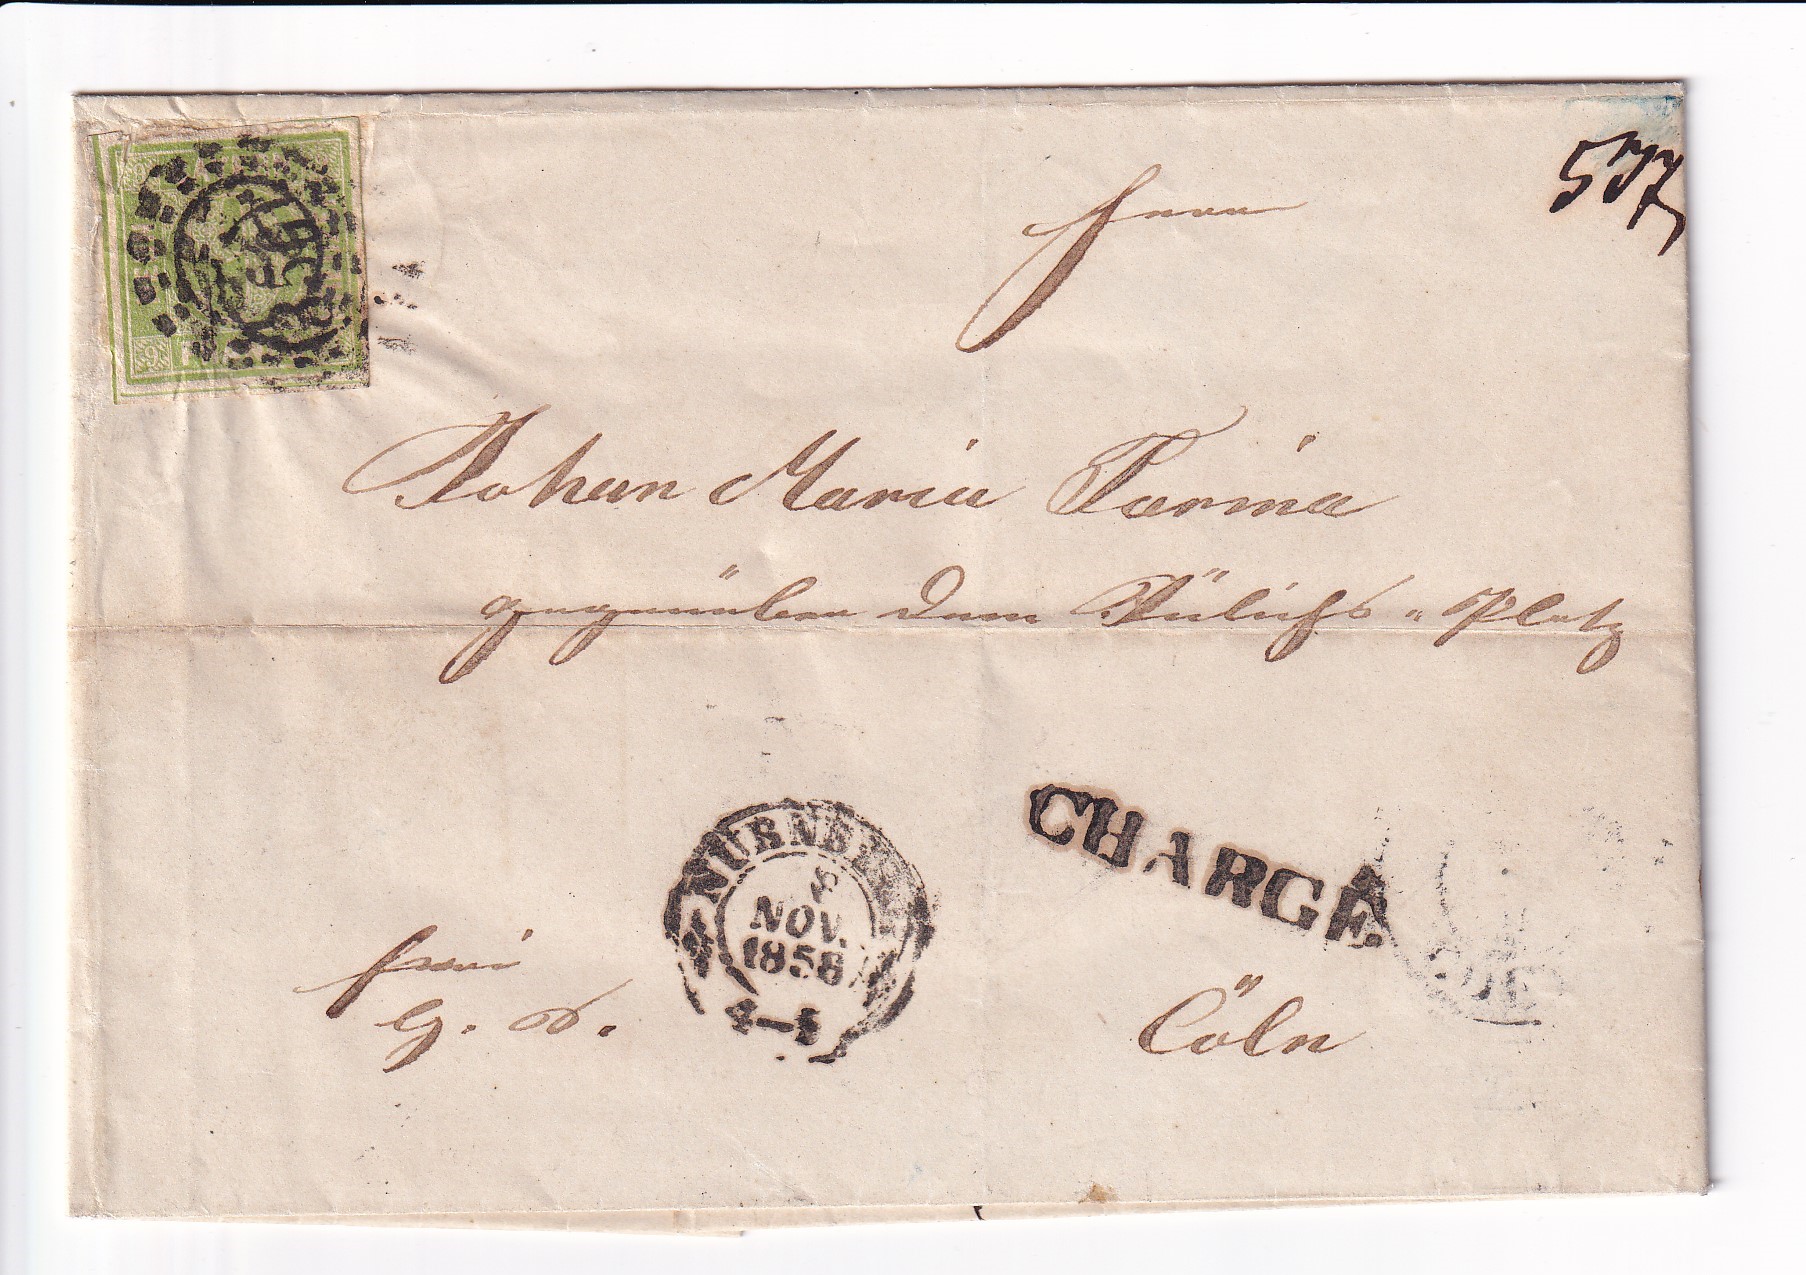 537
Herrn
Johan Maria Farina
gegenüber dem Jülichs-Platz
CHARGÉ.
NÜRNBERG
NOV.
1858
4-5
frei
Cöln